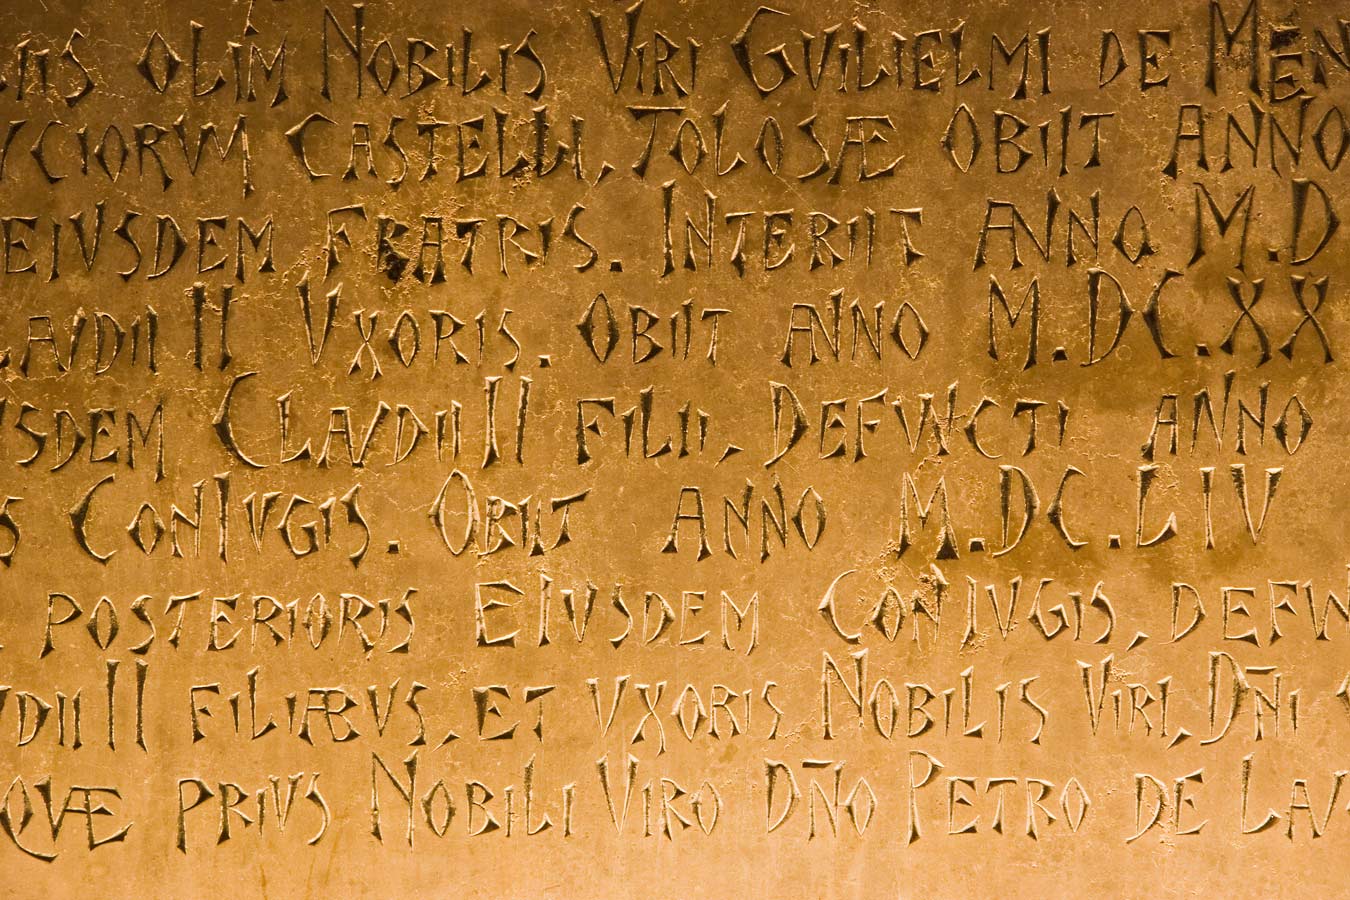 OLIM NOBILIS VIRI GVILIELMI DE
CASTELLI, TOLOSÆ OBIIT ANNO
EIVSDEM FRATRIS. INTERIIT ANNO M.D
II VXORIS. OBIIT ANNO M.DC.XX
CLAVDII II FILII, DEFVNCTI ANNO
CONIVGIS. OBIIT ANNO M.DC.LIV
POSTERIORIS EIVSDEM CONIVGIS,
II FILIÆBVS, ET VXORIS NOBILIS VIRI, DN̄I
QVÆ PRIVS NOBILI VIRO DN̄O PETRO DE